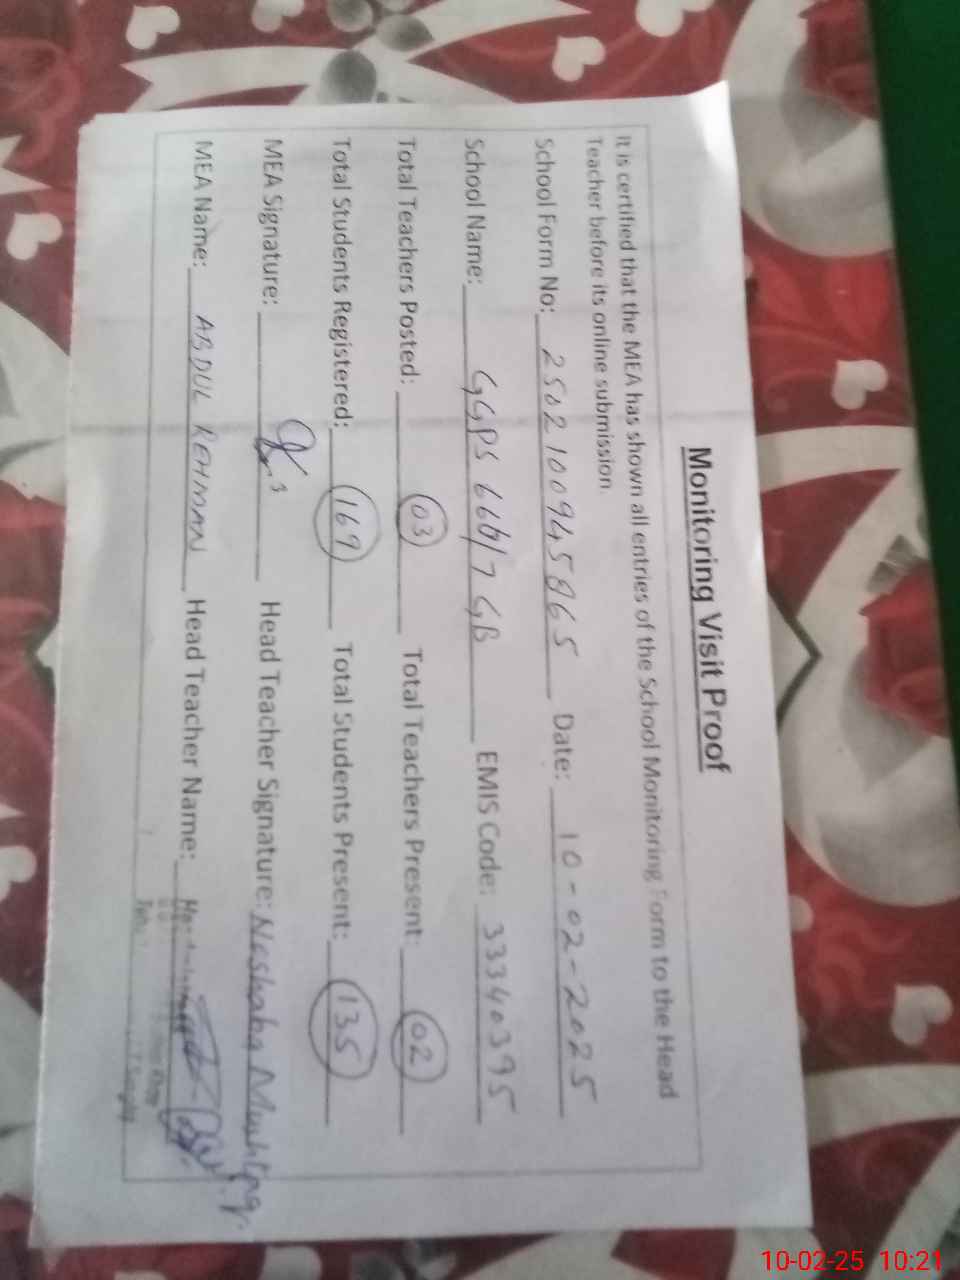 Monitoring Visit Proof
It is certified that the MEA has shown all entries of the School Monitoring Form to the Head
Teacher before its online submission.
School Form No: 2502100945865 Date: 10-02-2025
School Name: GGPS 660/7 GB EMIS Code: 33340395
Total Teachers Posted: 03 Total Teachers Present: 02
Total Students Registered: 169 Total Students Present: 135
MEA Signature: Head Teacher Signature: Nashaba Mushtaq
MEA Name: ABDUL REHMAN Head Teacher Name:
10-02-25 10:21